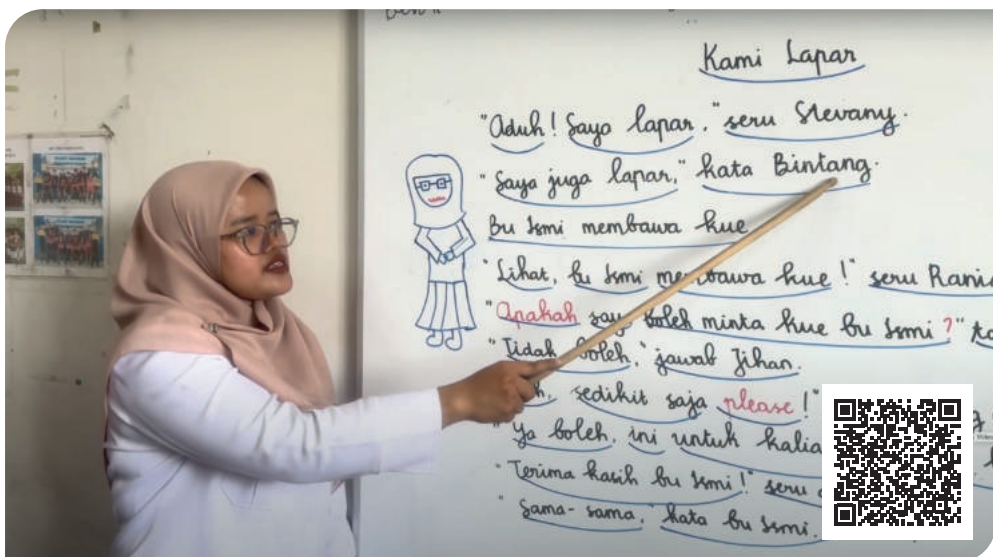 Kami Lapar
"Aduh! Saya lapar," seru Stevany.
"Saya juga lapar," kata Bintang.
Bu Ismi membawa kue
"Lihat, bu Ismi membawa kue!" seru
"Apakah saya boleh minta kue bu Ismi?"
"Tidak boleh," jawab Jihan.
sedikit saja please!"
"Ya boleh, ini untuk
"Terima kasih bu Ismi!" seru
"Sama-sama," kata bu Ismi.